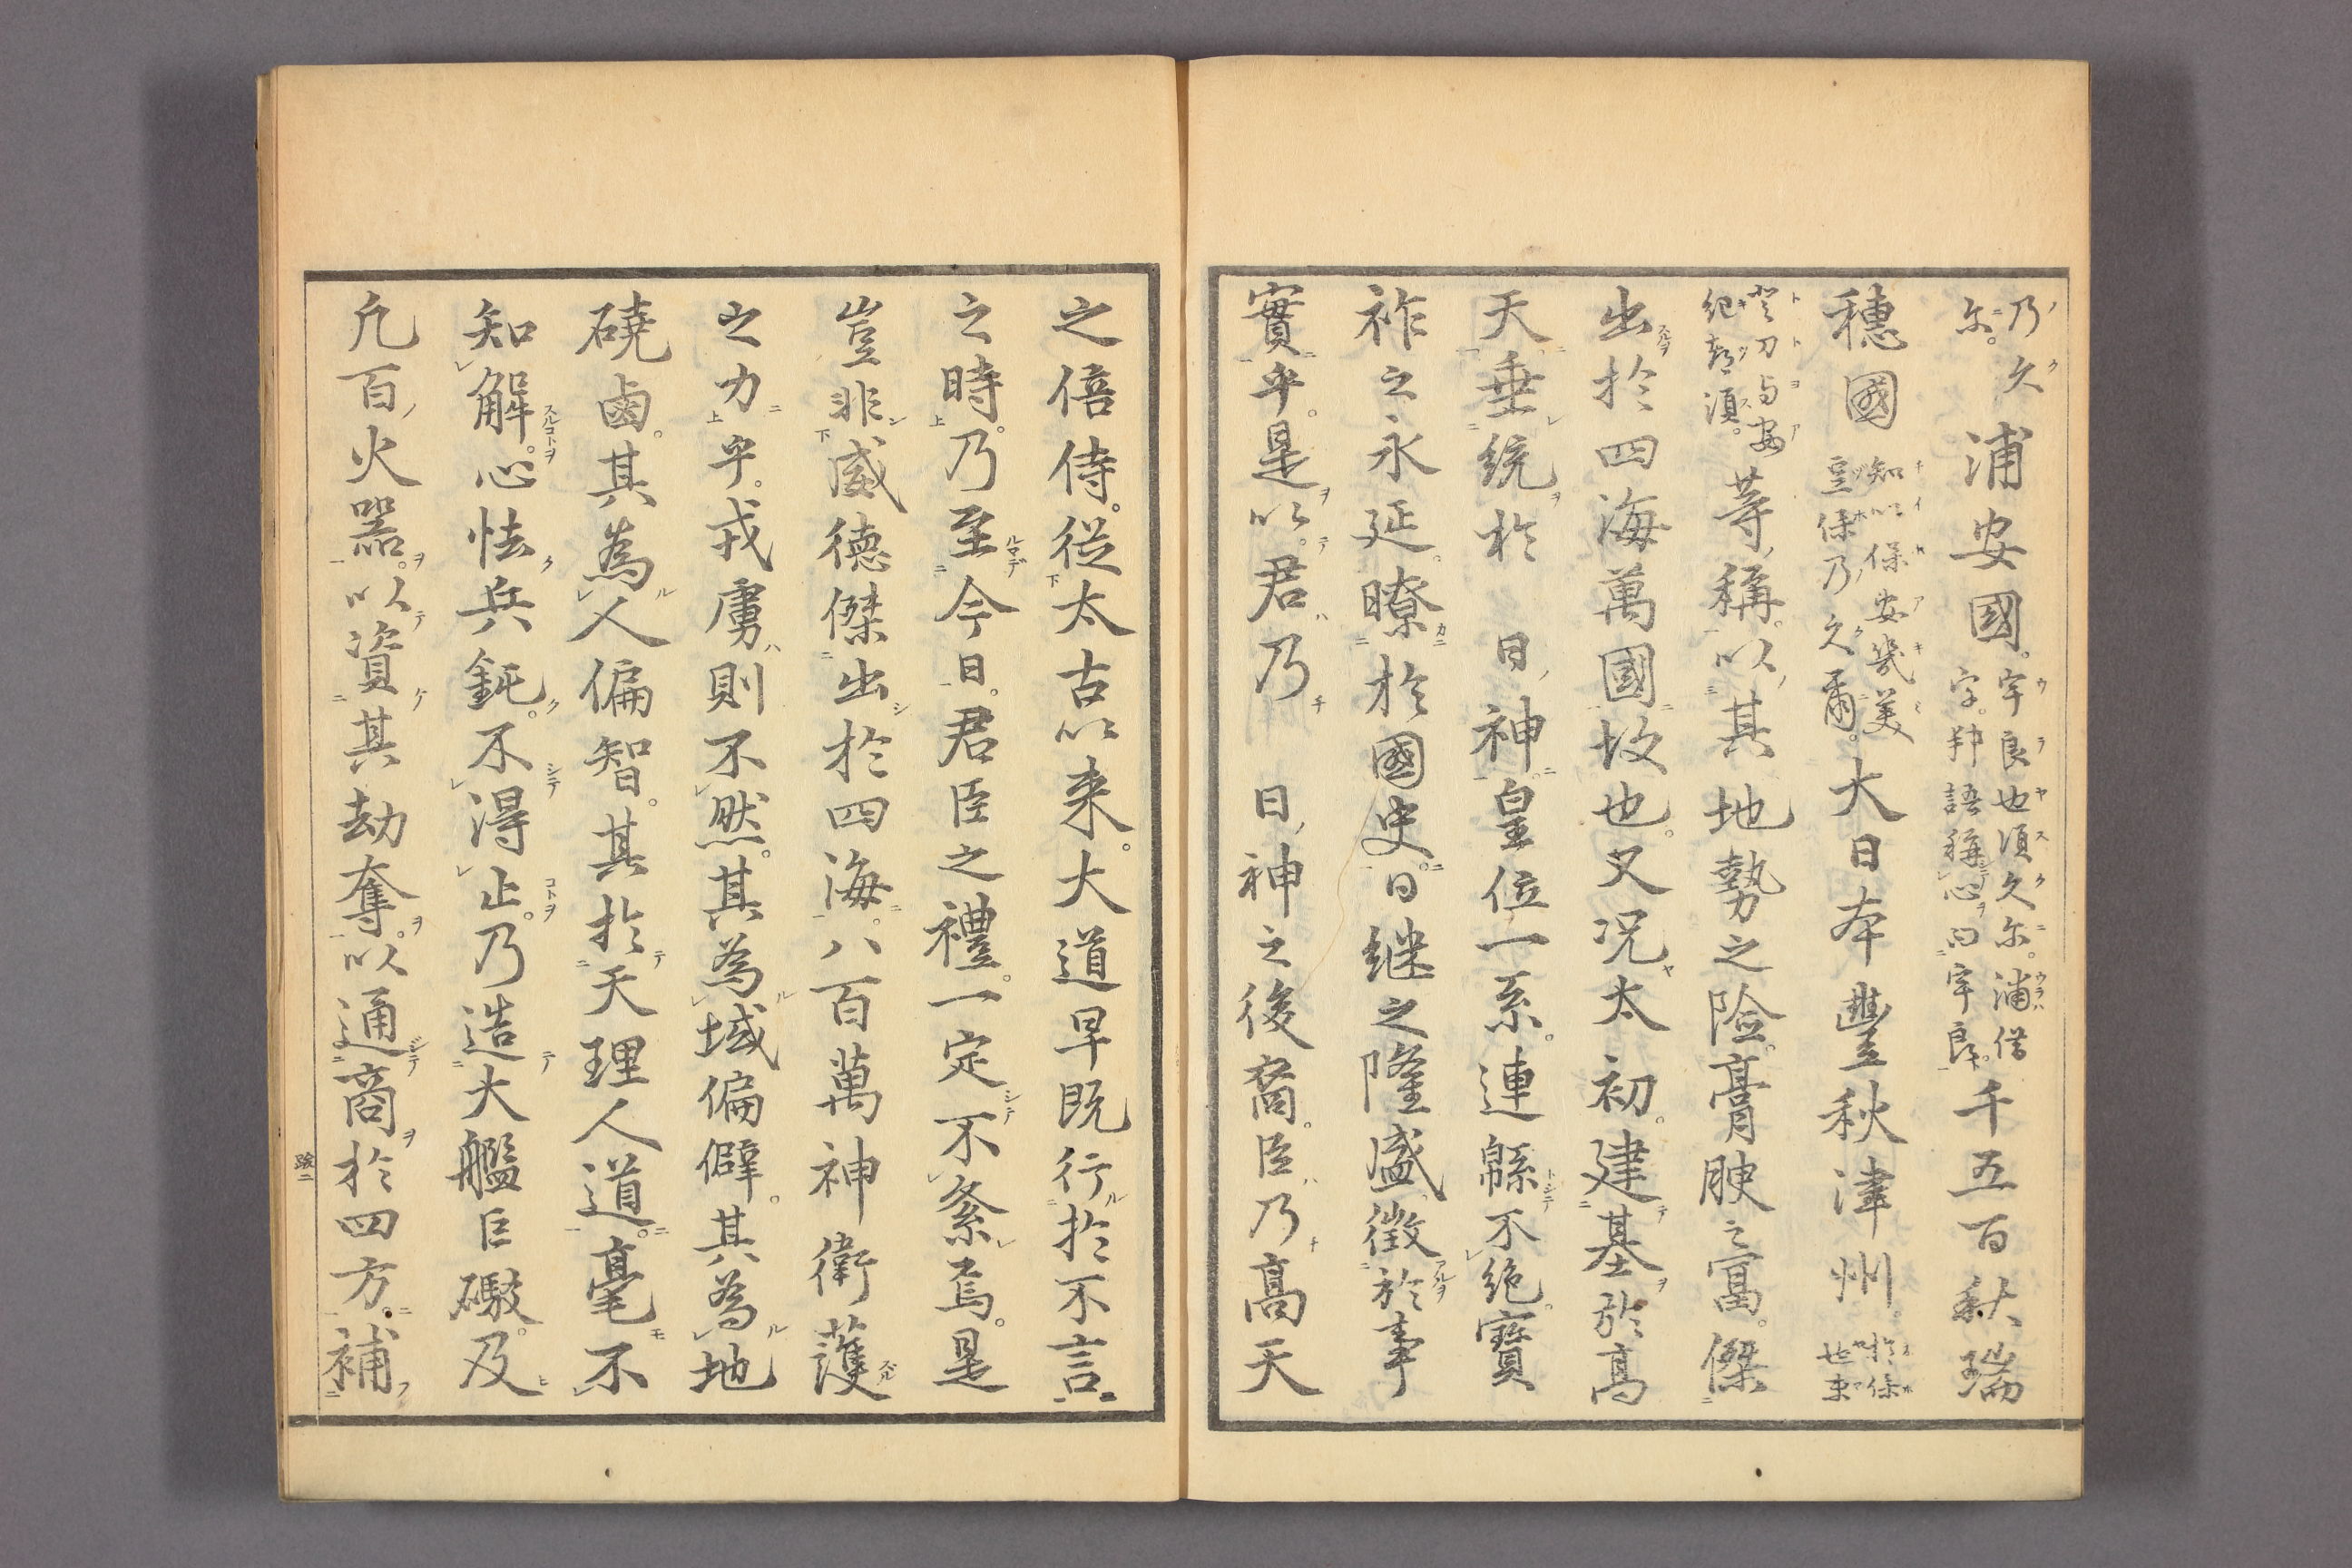 乃久尓。浦安國。宇良也須久尓。浦借字。耕語稱心曰宇良。千五百秋瑞
穗國知以保安幾美豆保乃久爾。大日本豐秋津州。於保也末
登刀与安紀都須。等稱。以其地勢之險。膏腴之富。傑
出於四海萬國故也。又況太初。建基於高
天垂統於 日神。皇位一系。連緜不絶。寶
祚之永延。瞭於國史。日継之隆盛。徴於事
實乎。是以。君乃 日神之後裔。臣乃高天
之倍侍。從太古以来。大道早既行於不言
之時。乃至今日。君臣之禮。一定不紊焉。是
豈非威德傑出於四海。八百萬神衛護
之力乎。戎虜則不然。其為域偏僻。其為地
磽鹵。其為人偏智。其於天理人道。毫不
知解。心怯兵鈍。不得止。乃造大艦巨礮。及
凡百火器。以資其劫奪。以通商於四方。補
跋二